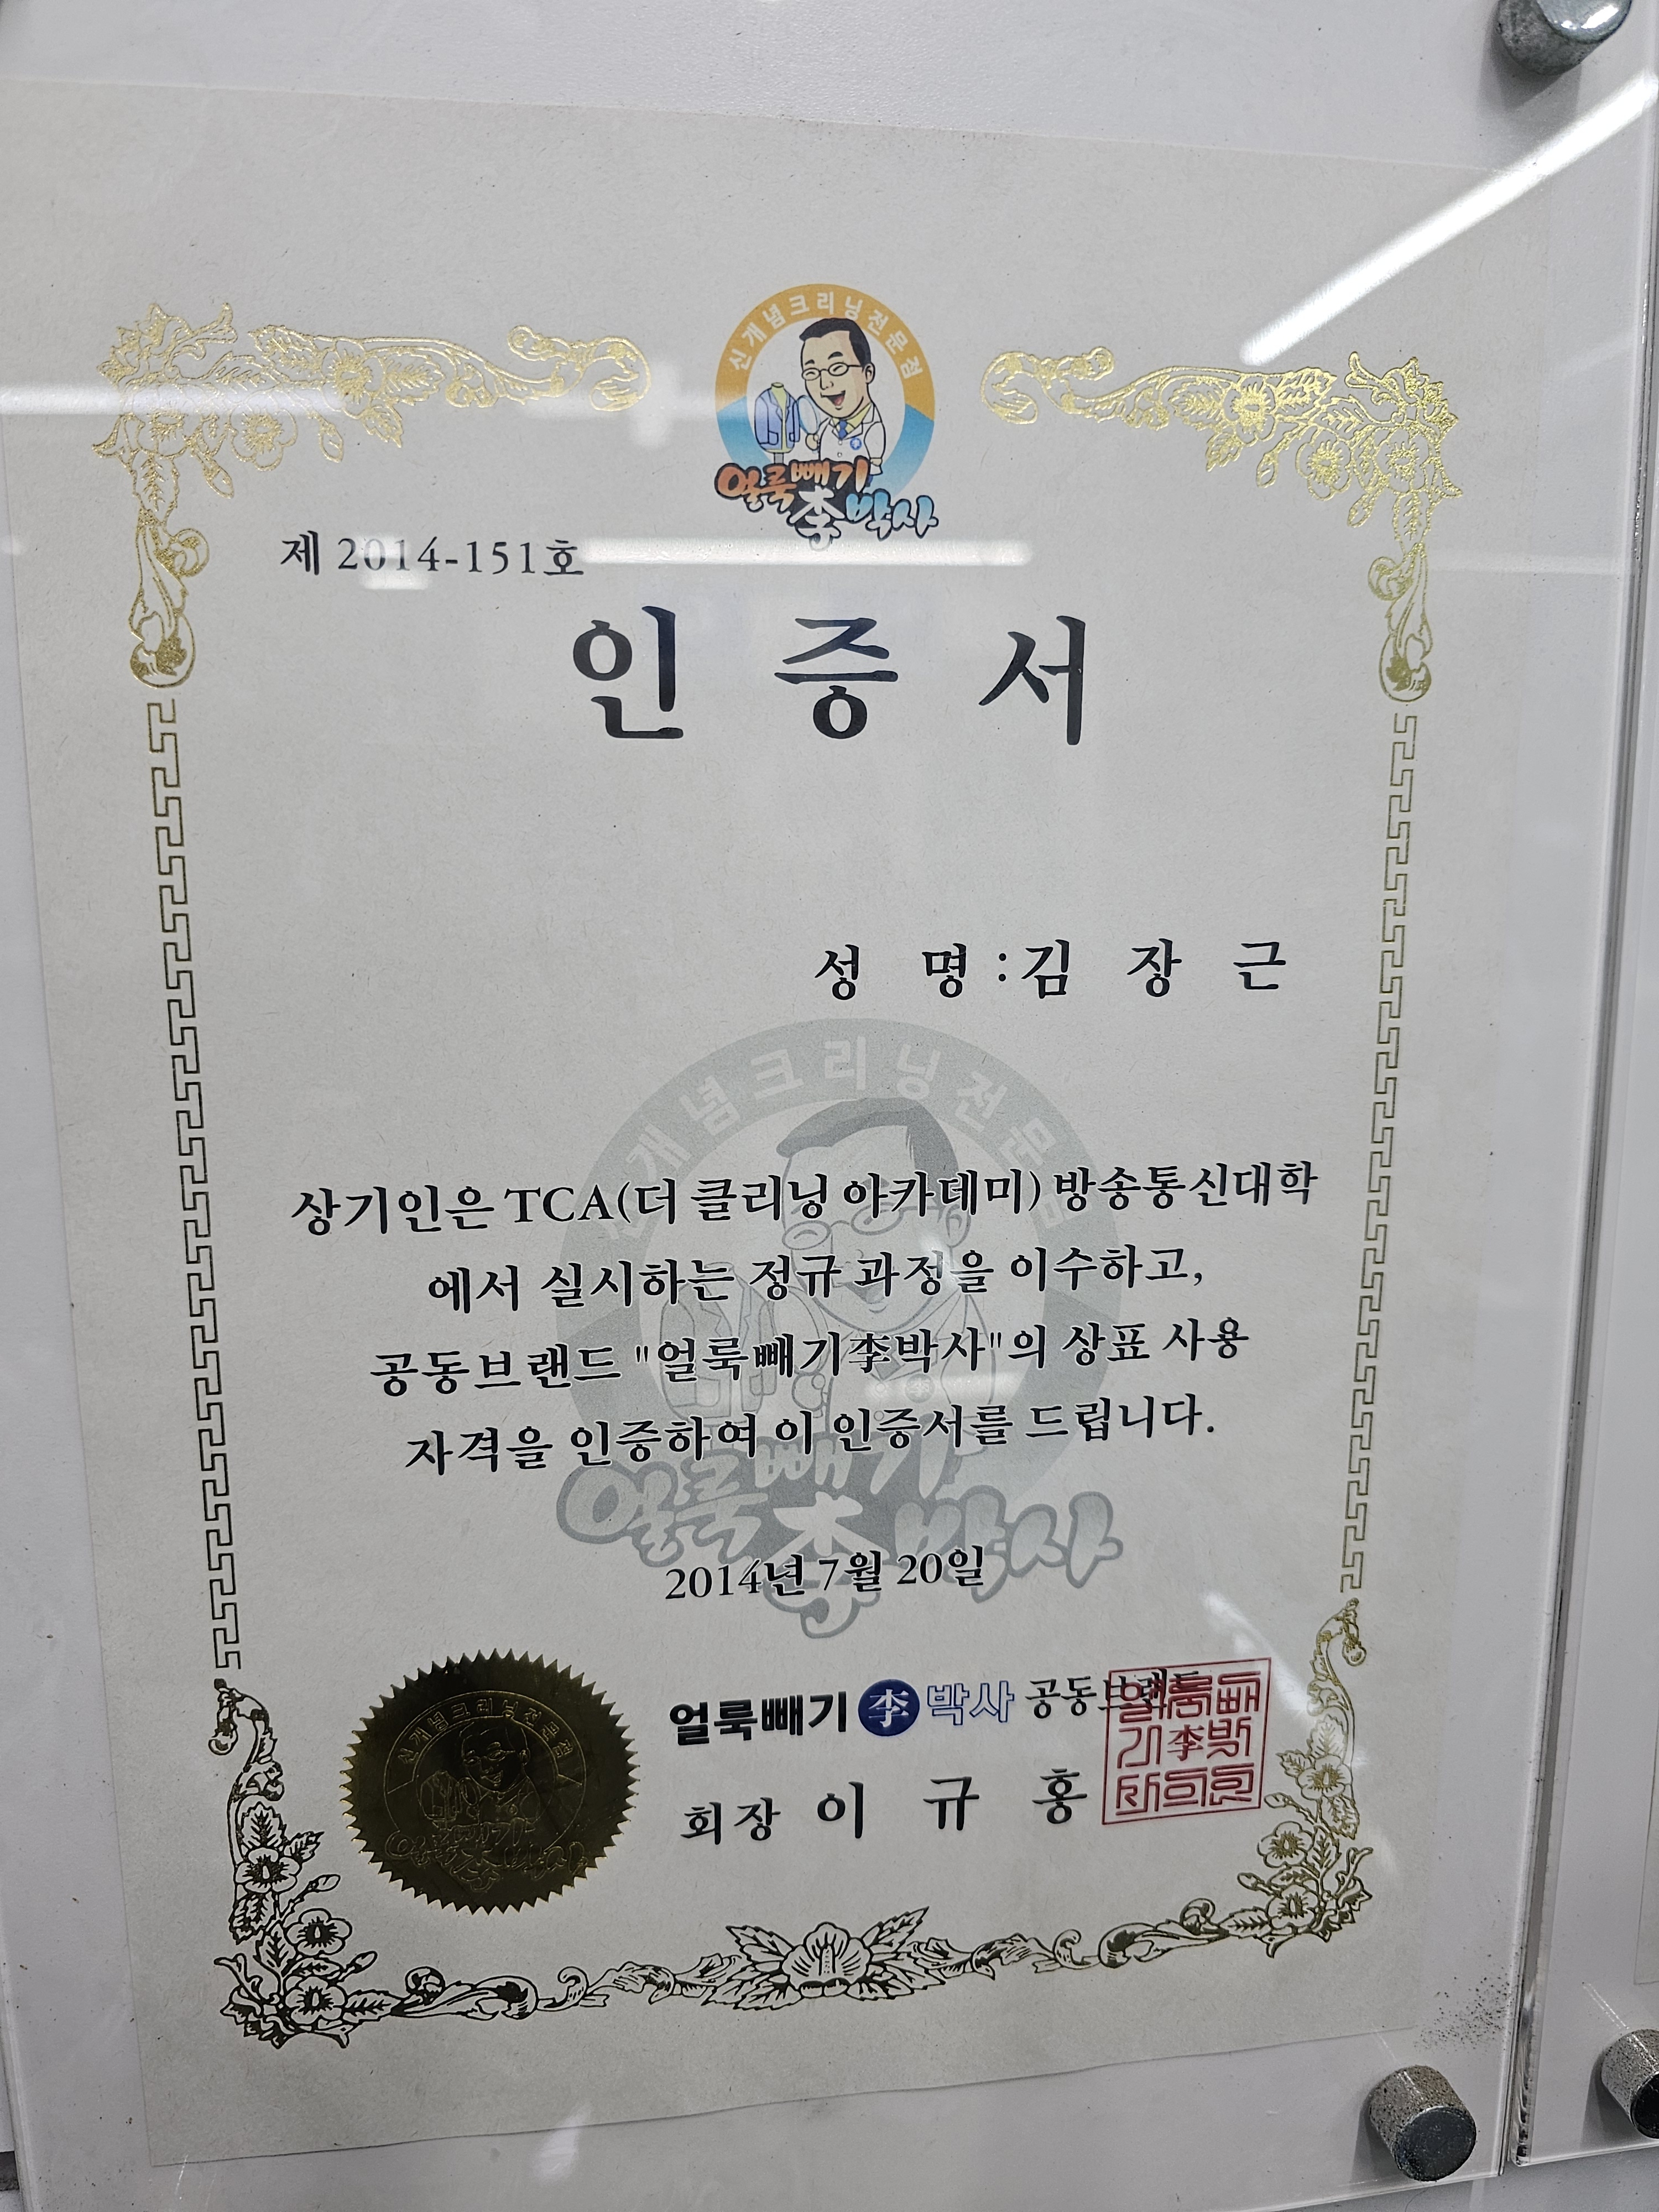 신개념크리닝전문점
얼룩빼기
李박사
제 2014-151호
인 증 서
성 명 : 김 장 근
신개념크리닝전문점
상기인은 TCA(더 클리닝 아카데미) 방송통신대학
에서 실시하는 정규 과정을 이수하고,
공동브랜드 "얼룩빼기李박사"의 상표 사용
자격을 인증하여 이 인증서를 드립니다.
얼룩빼기
李박사
2014년 7월 20일
신개념크리닝전문점
얼룩빼기
李박사
얼룩빼기 李 박사 공동브랜드
회장 이 규 홍